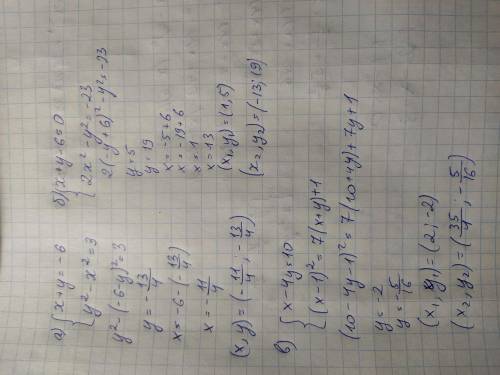 а) { x+y = -6
{ y² - x² = 3
y² - (-6-y)² = 3
y = -13/4
x = -6 - (-13/4)
x = -11/4
(x, y) = (-11/4 ; -13/4)
б) { x+y-6=0
{ 2x² - y² = -23
2(-y+6)² - y² = -23
y = 5
y = 19
x = -5+6
x = -19+6
x = 1
x = -13
(x₁, y₁) = (1, 5)
(x₂, y₂) = (-13; 19)
в) { x-4y=10
{ (x-1)² = 7(x+y)+1
(10-4y-1)² = 7(10+4y)+7y+1
y = -2
y = -5/16
(x₁, y₁) = (2; -2)
(x₂, y₂) = (35/4 ; -5/16)